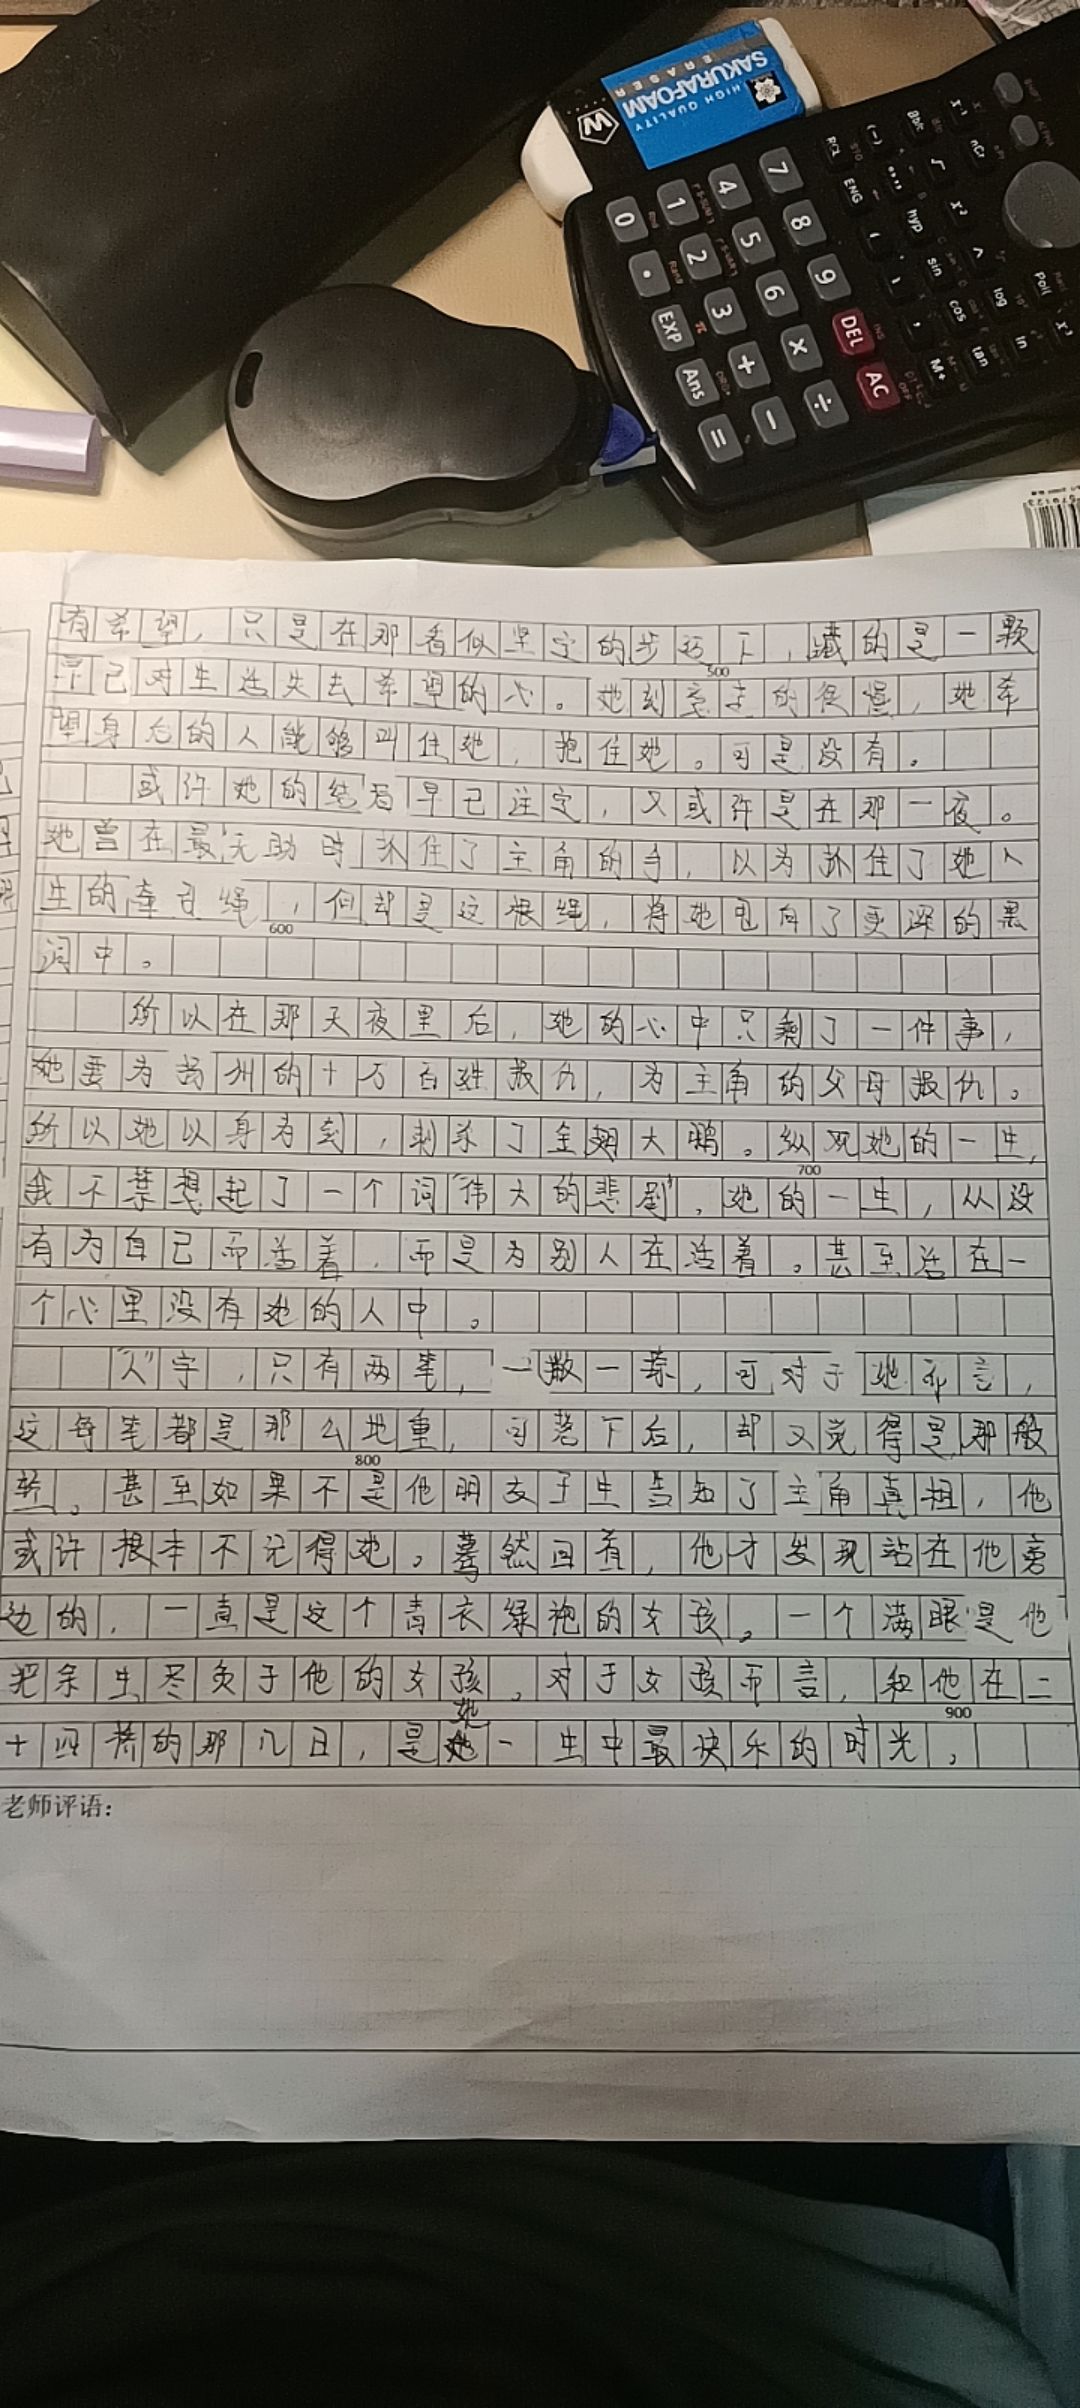 HIGH QUALITY
SAKURAFOAM
ERASER
W
7 8 9 DEL AC
4 5 6 × ÷
1 2 3 + −
0 . EXP Ans =
RCL ENG ( ) , M+
(-) hyp sin cos tan
x² ^ log ln
有希望，只是在那看似坚定的步迈下，藏的是一颗
500
早已对生活失去希望的心。她刻意走的很慢，她希
望身后的人能够叫住她，抱住她。可是没有。
或许她的结局早已注定，又或许是在那一夜。
她曾在最无助时抓住了主角的手，以为抓住了她人
生的牵引绳，但却是这根绳，将她甩向了更深的黑
600
洞中。
所以在那天夜里后，她的心中只剩了一件事，
她要为扬州的十万百姓报仇，为主角的父母报仇。
所以她以身为刻，刺杀了金翅大鹏。纵观她的一生，
700
我不禁想起了一个词“伟大的悲剧”，她的一生，从没
有为自己而活着，而是为别人在活着。甚至活在一
个心里没有她的人中。
“人”字，只有两笔，一撇一捺，可对于她而言，
这每笔都是那么地重，可落下后，却又觉得是那般
800
轻。甚至如果不是他朋友于生告知了主角真相，他
或许根本不记得她。蓦然回首，他才发现站在他旁
边的，一直是这个青衣绿袍的女孩。一个满眼是他
把余生尽负于他的女孩。对于女孩而言，和他在二
900
十四桥的那几日，是她一生中最快乐的时光。
老师评语：